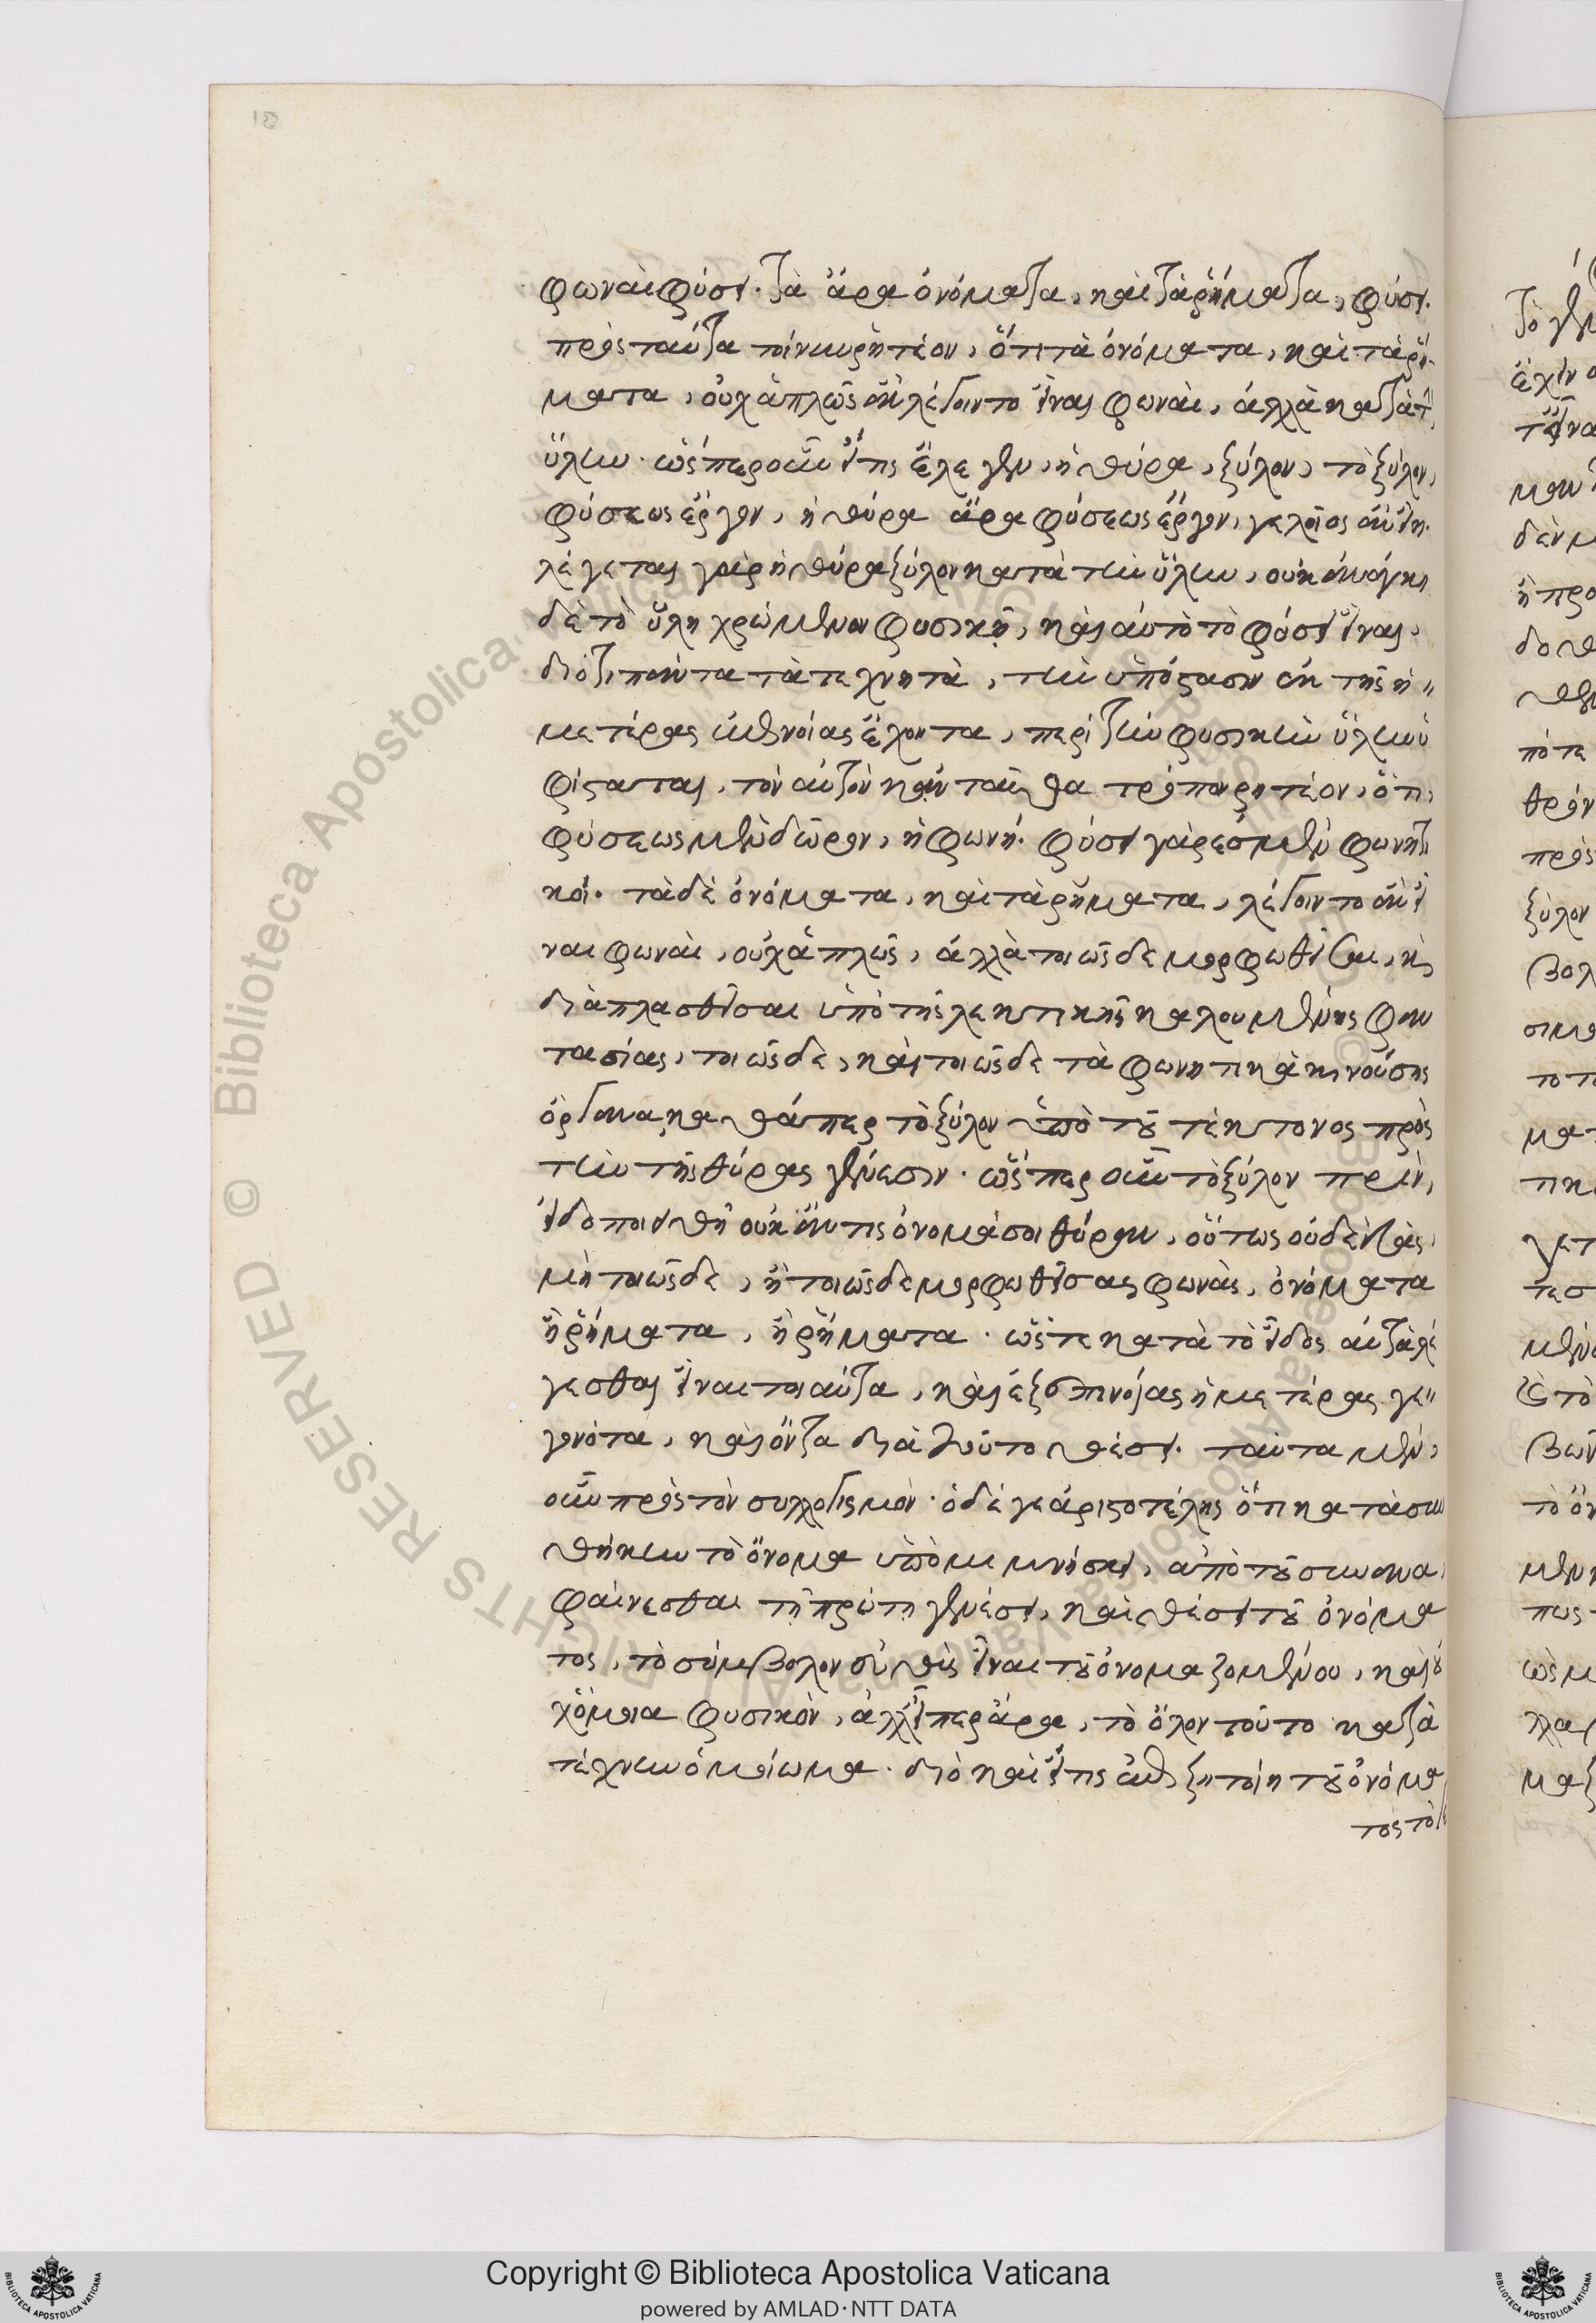 φωναὶ φύσει. τὰ ἄρα ὀνόματα, καὶ τὰ ῥήματα, φύσει.
πρὸς ταῦτα τοίνυν ῥητέον, ὅτι τὰ ὀνόματα, καὶ τὰ ῥή-
ματα, οὐχ ἁπλῶς ἂν λέγοιντο εἶναι φωναὶ, ἀλλὰ κατὰ τὴν
ὕλην. ὥσπερ οὖν εἴ τις ἔλεγεν, ἡ θύρα, ξύλον, τὸ ξύλον,
φύσεως ἔργον, ἡ θύρα ἄρα φύσεως ἔργον, γελοῖος ἂν εἴη.
λέγεται γὰρ ἡ θύρα ξύλον κατὰ τὴν ὕλην, οὐκ ἀνάγκη
δὲ τὸ ὕλη χρώμενον φυσικῇ, καὶ αὐτὸ τὸ φύσει εἶναι.
διότι πάντα τὰ τεχνητὰ, τὴν ὑπόστασιν ἐκ τῆς ἡ-
μετέρας ἐπινοίας ἔχοντα, περὶ τὴν φυσικὴν ὕλην ὑ
φίσταται, τὸν αὐτὸν κἀνταῦθα τρόπον ῥητέον, ὅτι,
φύσεως μὲν δῶρον, ἡ φωνή. φύσει γὰρ ἐσμὲν φωνητι
κοί. τὰ δὲ ὀνόματα, καὶ τὰ ῥήματα, λέγοιντο ἂν εἶ
ναι φωναὶ, οὐχ ἁπλῶς, ἀλλὰ τοιῶσδε μορφωθεῖσαι, καὶ
διαπλασθεῖσαι ὑπὸ τῆς λεκτικῆς καλουμένης φαν
τασίας, τοιῶσδε, καὶ τοιῶσδε τὰ φωνητικὰ κινούσης
ὄργανα, καθάπερ τὸ ξύλον ὑπὸ τοῦ τέκτονος πρὸς
τὴν τῆς θύρας γένεσιν. ὥσπερ οὖν τὸ ξύλον πρὶν,
εἰδοποιηθῇ οὐκ ἄν τις ὀνομάσοι θύραν, οὕτως οὐδὲ τὰς
μὴ τοιῶσδε, ἢ τοιῶσδε μορφωθείσας φωνὰς, ὀνόματα
ἢ ῥήματα, ἢ ῥήματα. ὥστε κατὰ τὸ εἶδος αὐτὰ λέ
γεσθαι εἶναι τοιαῦτα, καὶ ἐξ ἐπινοίας ἡμετέρας γε-
γονότα, καὶ ὄντα διὰ τοῦτο θέσει. ταῦτα μὲν,
οὖν πρὸς τὸν συλλογισμόν. ὁ δέ γε ἀριστοτέλης ὅτι κατὰ συν
θήκην τὸ ὄνομα ὑπομιμνήσκει, ἀπὸ τοῦ συνανα
φαίνεσθαι τῇ πρώτῃ γενέσει, καὶ θέσει τοῦ ὀνόμα
τος, τὸ σύμβολον εὐθὺς εἶναι τοῦ ὀνομαζομένου, καὶ οὐ
χ ὁμοία φυσικὸν, ἀλλ' εἴπερ ἄρα, τὸ ὅλον τοῦτο κατὰ
τέχνην ὁμοίωμα. διὸ καὶ εἴ τις ἐπιζητοίη τοῦ ὀνόμα
τος τὸ